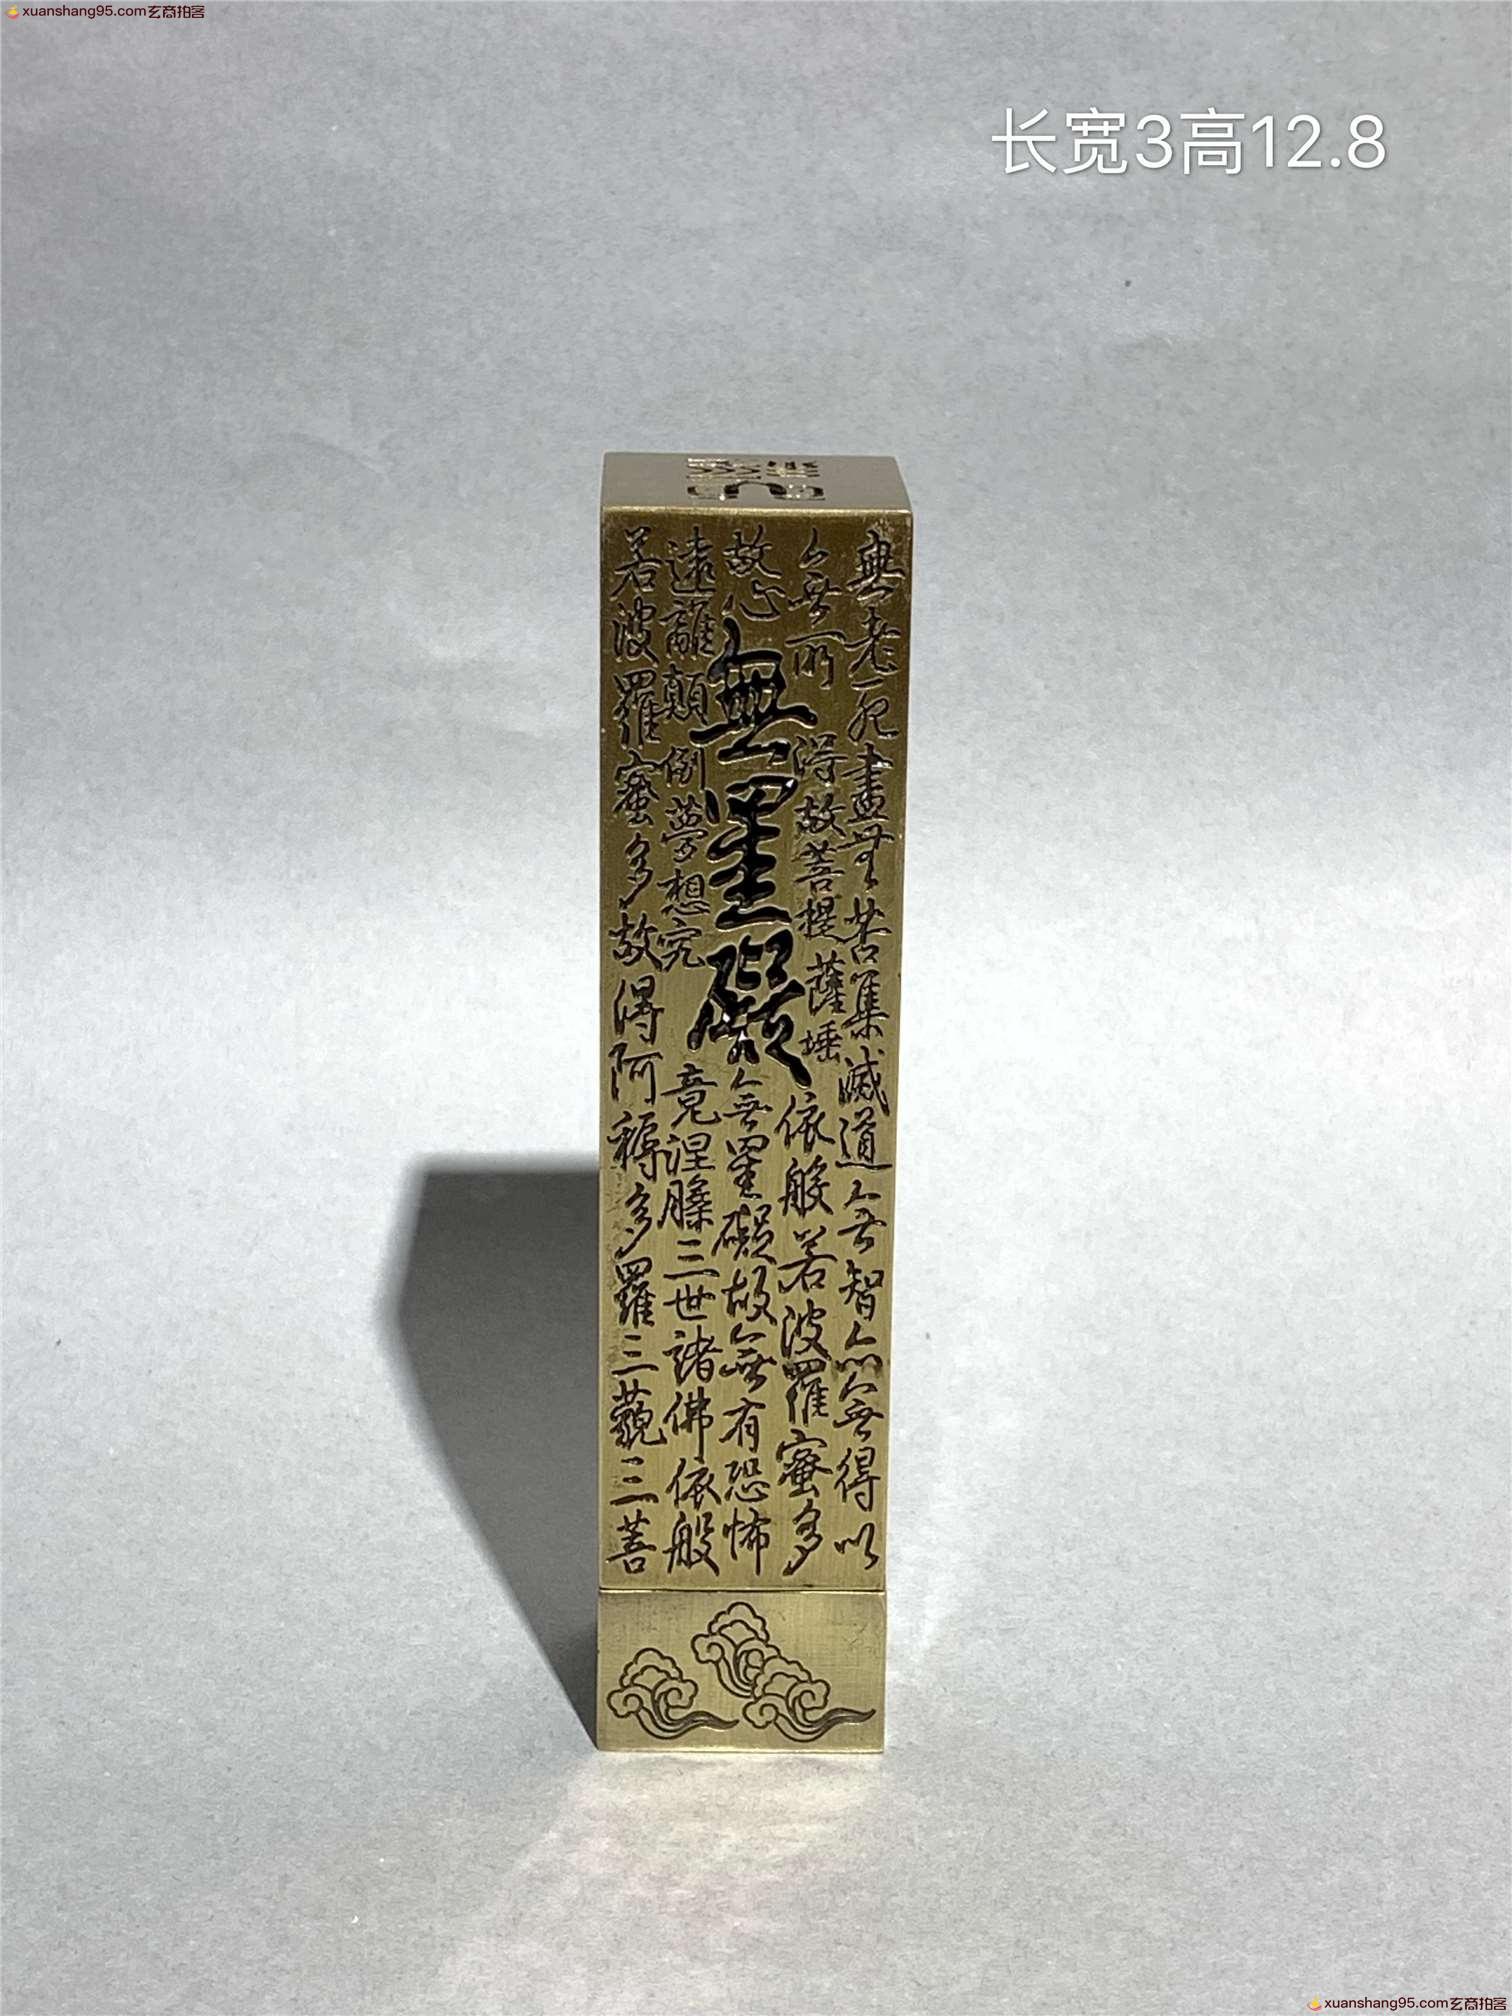 xuanshang95.com玄商拍客
长宽3高12.8
無老死盡無苦集滅道無智亦無得以
無所得故菩提薩埵依般若波羅蜜多
故心無罣礙無罣礙故無有恐怖
遠離顛倒夢想究竟涅槃三世諸佛依般
若波羅蜜多故得阿耨多羅三藐三菩
xuanshang95.com玄商拍客